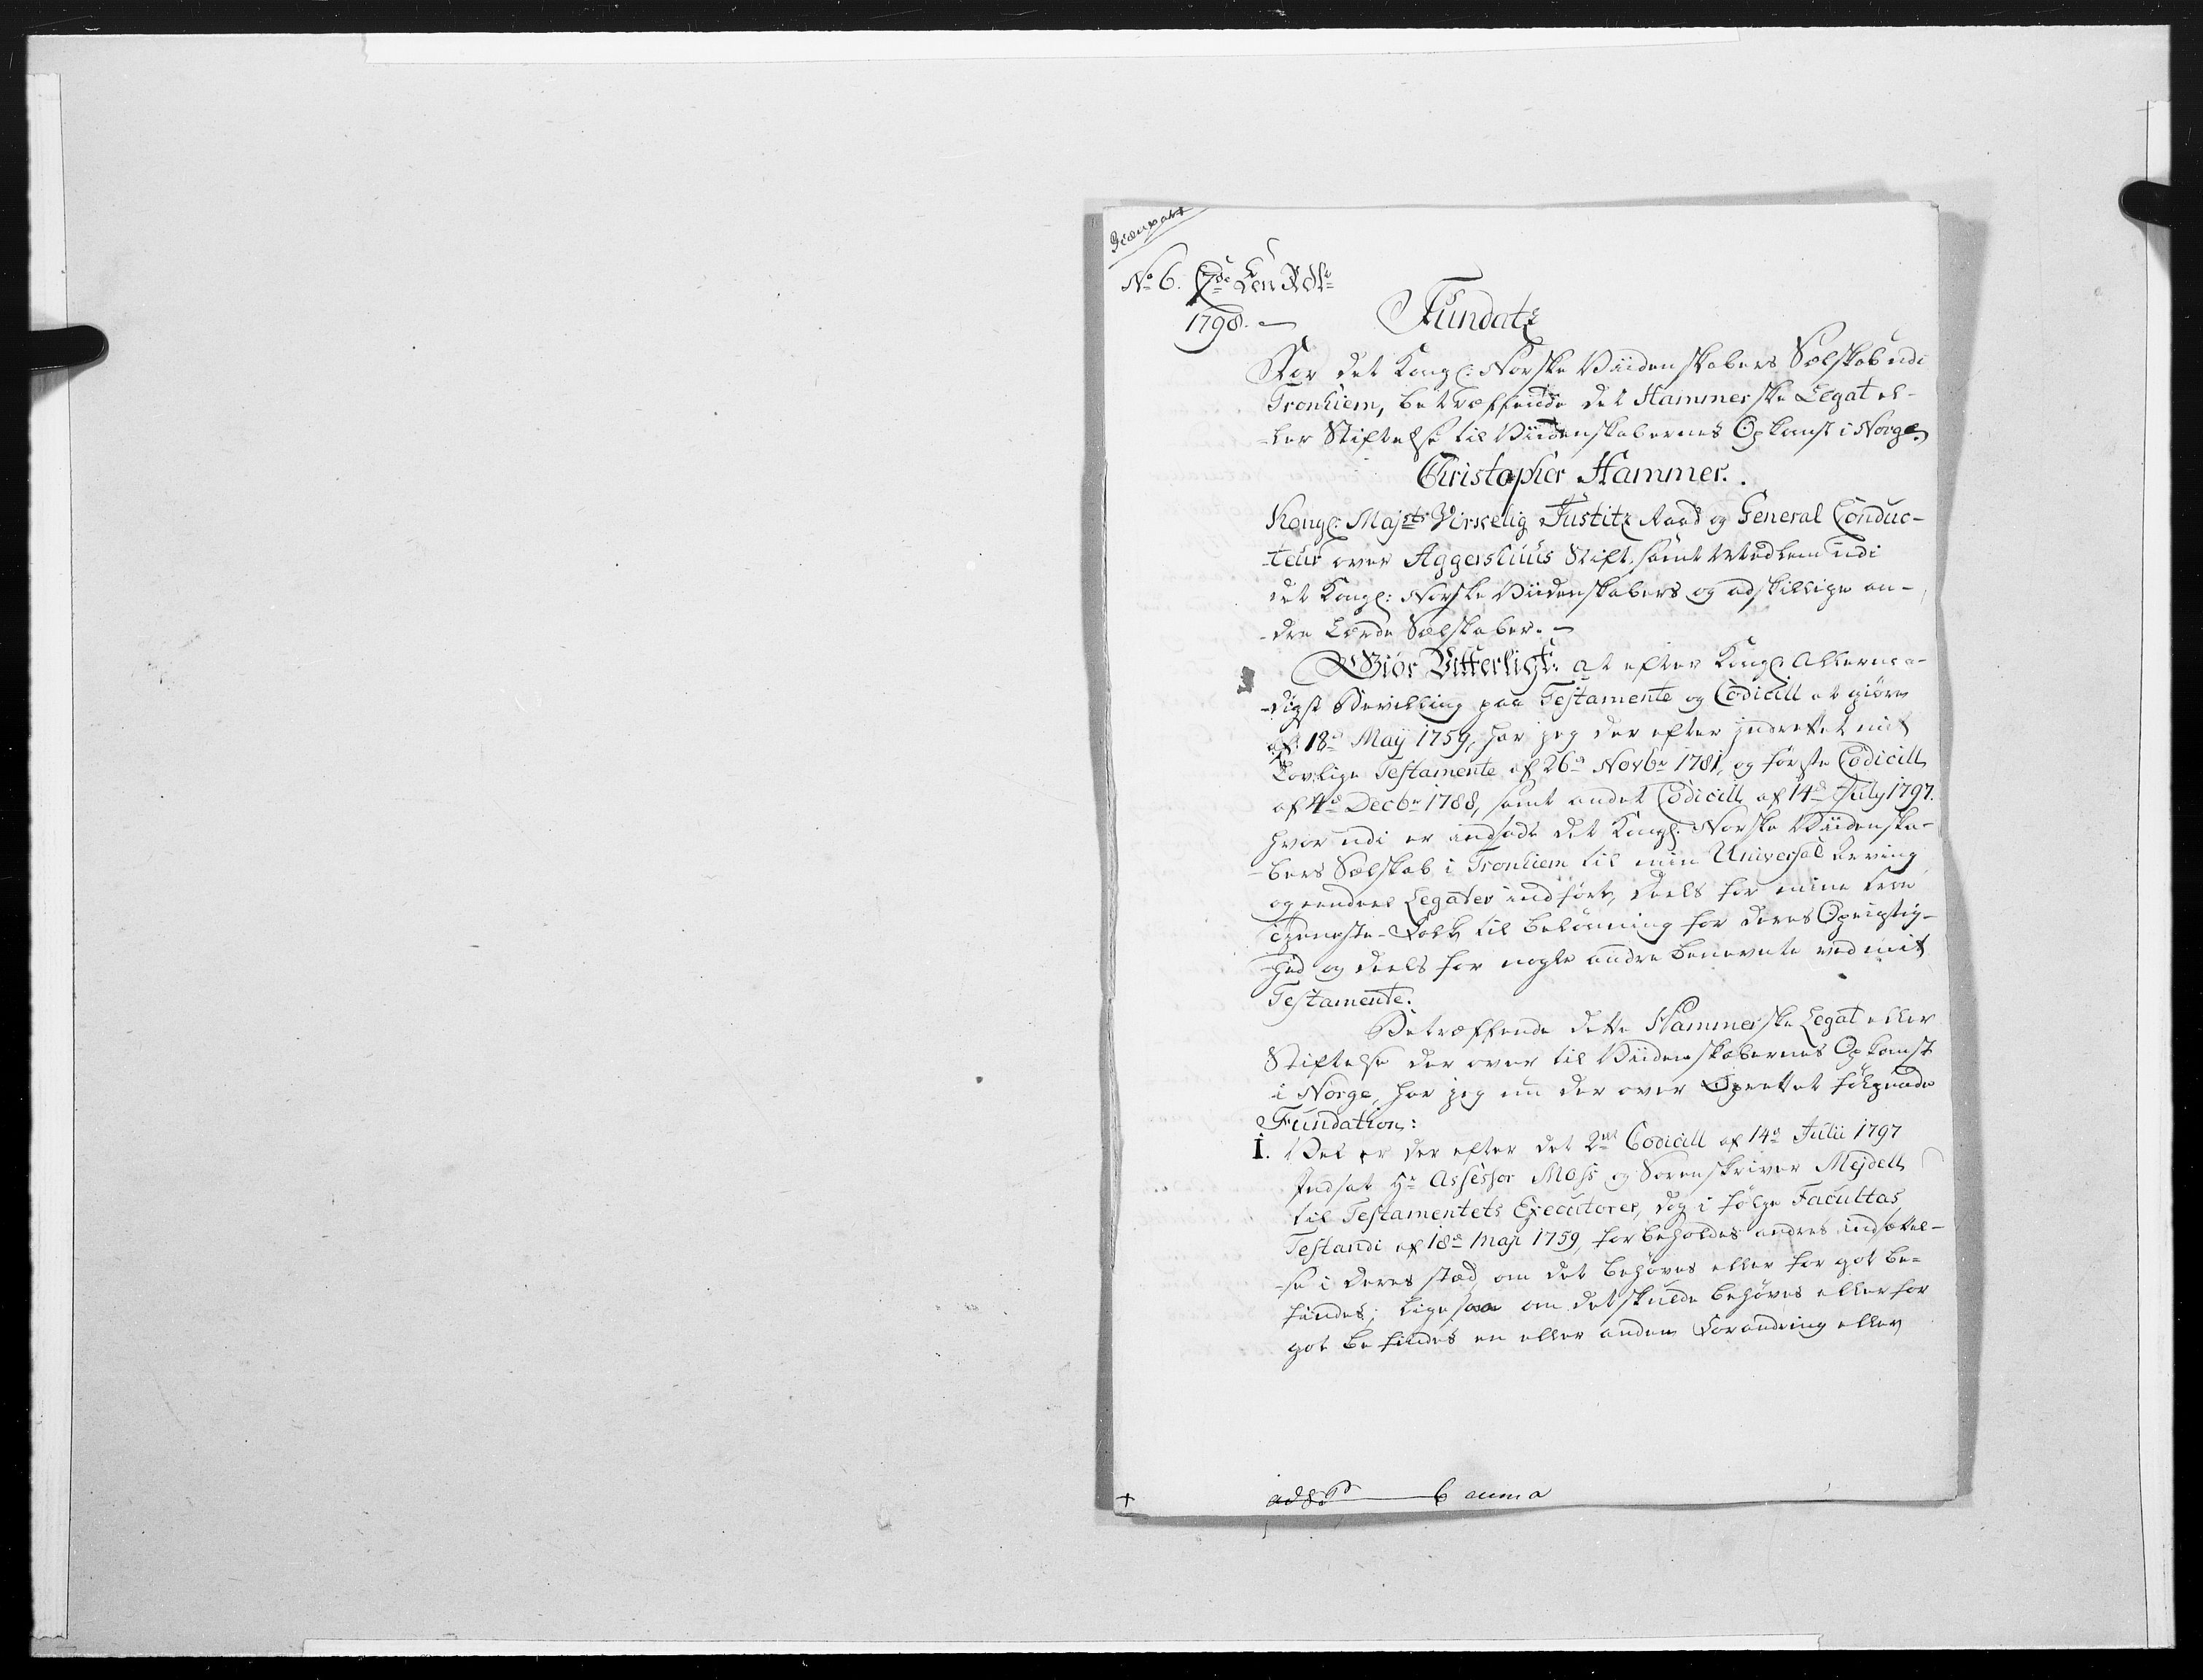 Gienpart
No 6. 24 Rdlr
1798.
Fundatz
For det Kongl: Norske Viidenskabers Selskab udi
Tronhiem, betræffende det Hammerske Legat el-
-ler Stiftelse til Viidenskabernes Opkomst i Norge
Christopher Hammer.
Kongl: Majsts Virkelig Justitz Raad og General Conduc-
-teur over Aggershuus Stift, samt Medlem udi
det Kongl: Norske Viidenskabers og adskillige an-
-dre Lærde Selskaber.
Giør Vitterligt: at efter Kongl Allernaa-
-digst Bevilling paa Testamente og Codicill at giøre
af 18d May 1759, har jeg der efter indrettet mit
Lovlige Testamente af 26d Novbr 1781, og første Codicill
af 4d Decbr 1788, samt andet Codicill af 14d July 1797.
hvor udi er indsadt det Kongl: Norske Viidenska-
-bers Selskab i Tronhiem til min Universal Arving
og eendeel Legater indført, deels for mine troe
Tieneste-Folk til belønning for deres Oprigtig-
-hed og deels for nogle andre benevnte ved mit
Testamente.
Betræffende dette Hammerske Legat eller
Stiftelse der over til Viidenskabernes Opkomst
i Norge, har jeg nu der over Oprettet følgende
Fundation:
I. Vel er der efter det 2det Codicill af 14d Julii 1797
Indsat Hr Assessor Moss og Sorenskriver Mejdell
til Testamentets Executorer, dog i følge Facultas
Testandi af 18d Maji 1759, forbeholdes anders indsættel-
-se i deres stæd, om det behøves eller for got be-
findes; ligesaa om det skulde behøves eller for
got befindes en eller anden Forandring eller